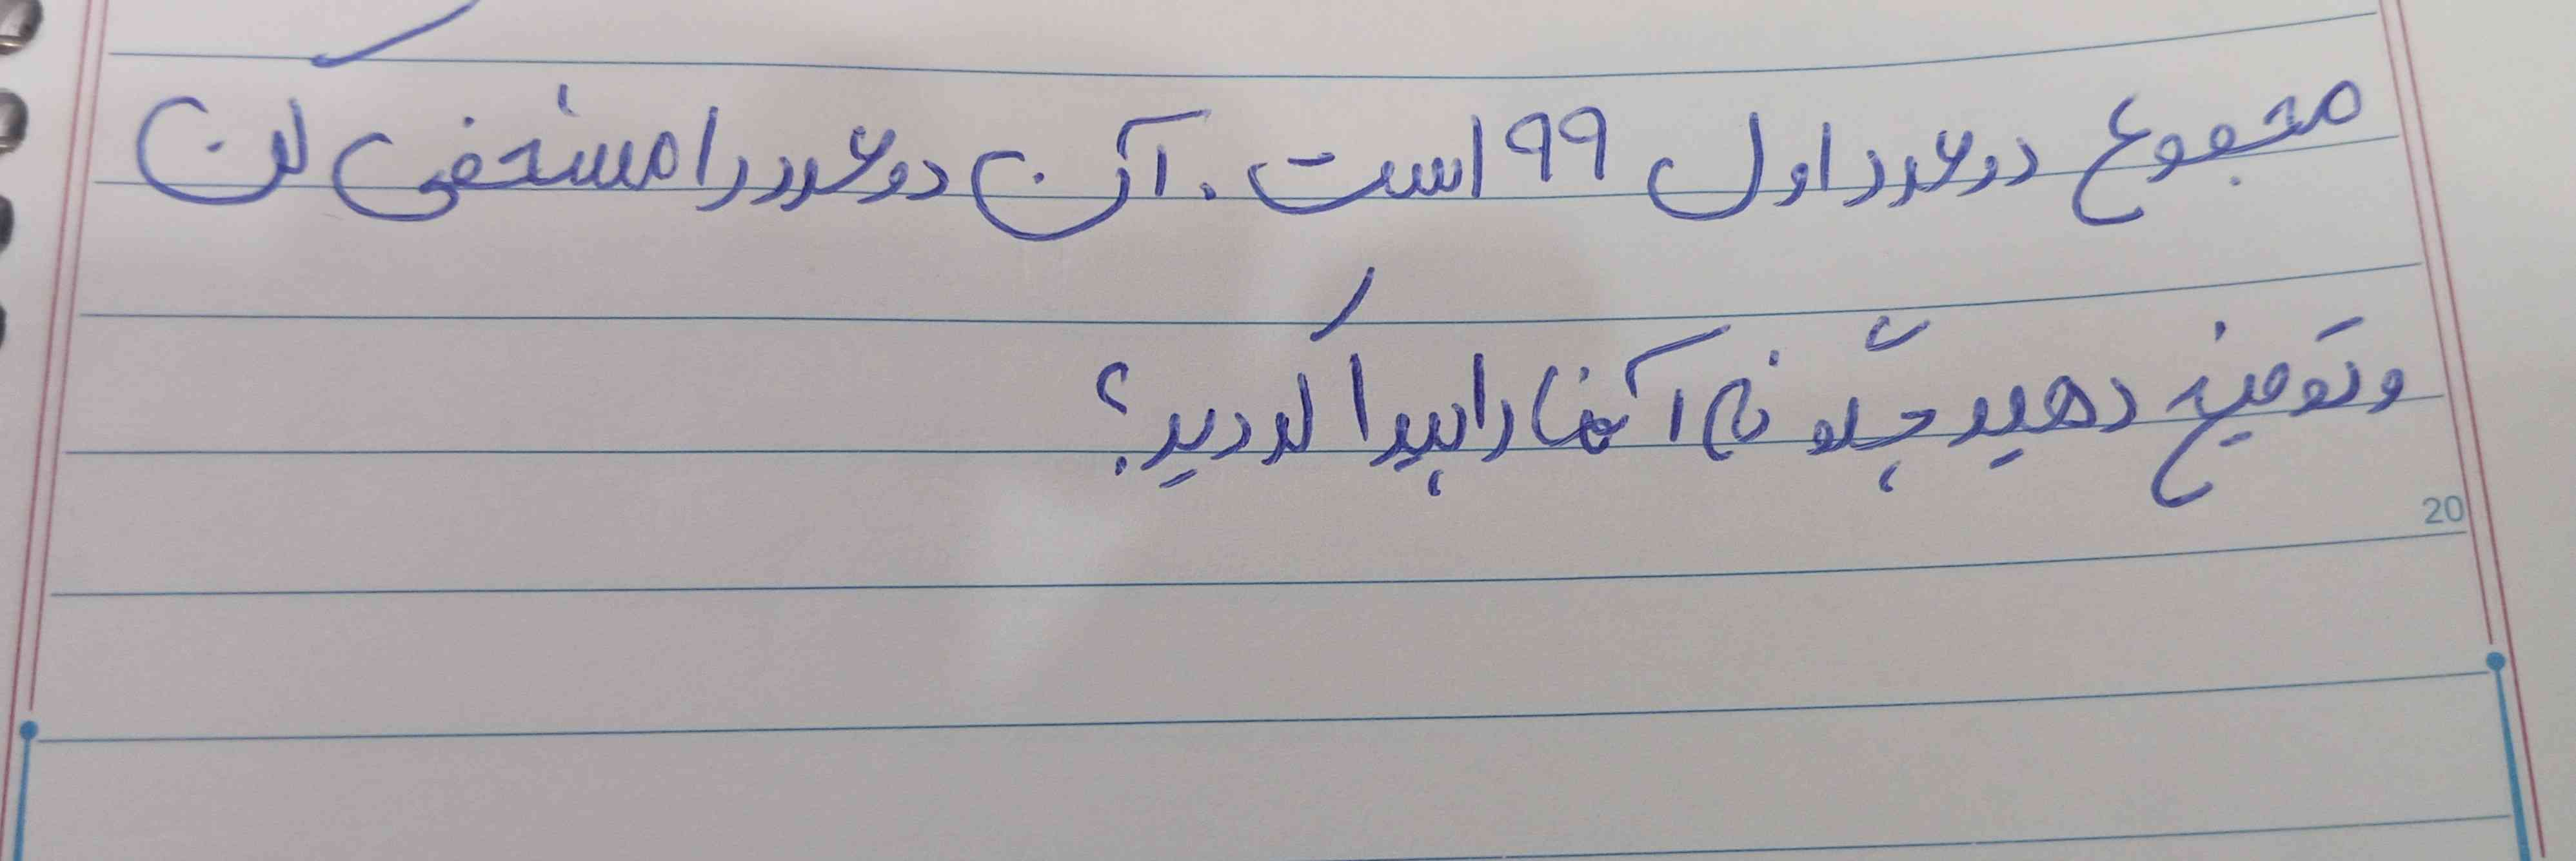 مجموع دو عدد اول ۹۹ است. آن دو عدد را مشخص کن
و توضیح دهید چگونه آنها را پیدا کردید؟
20